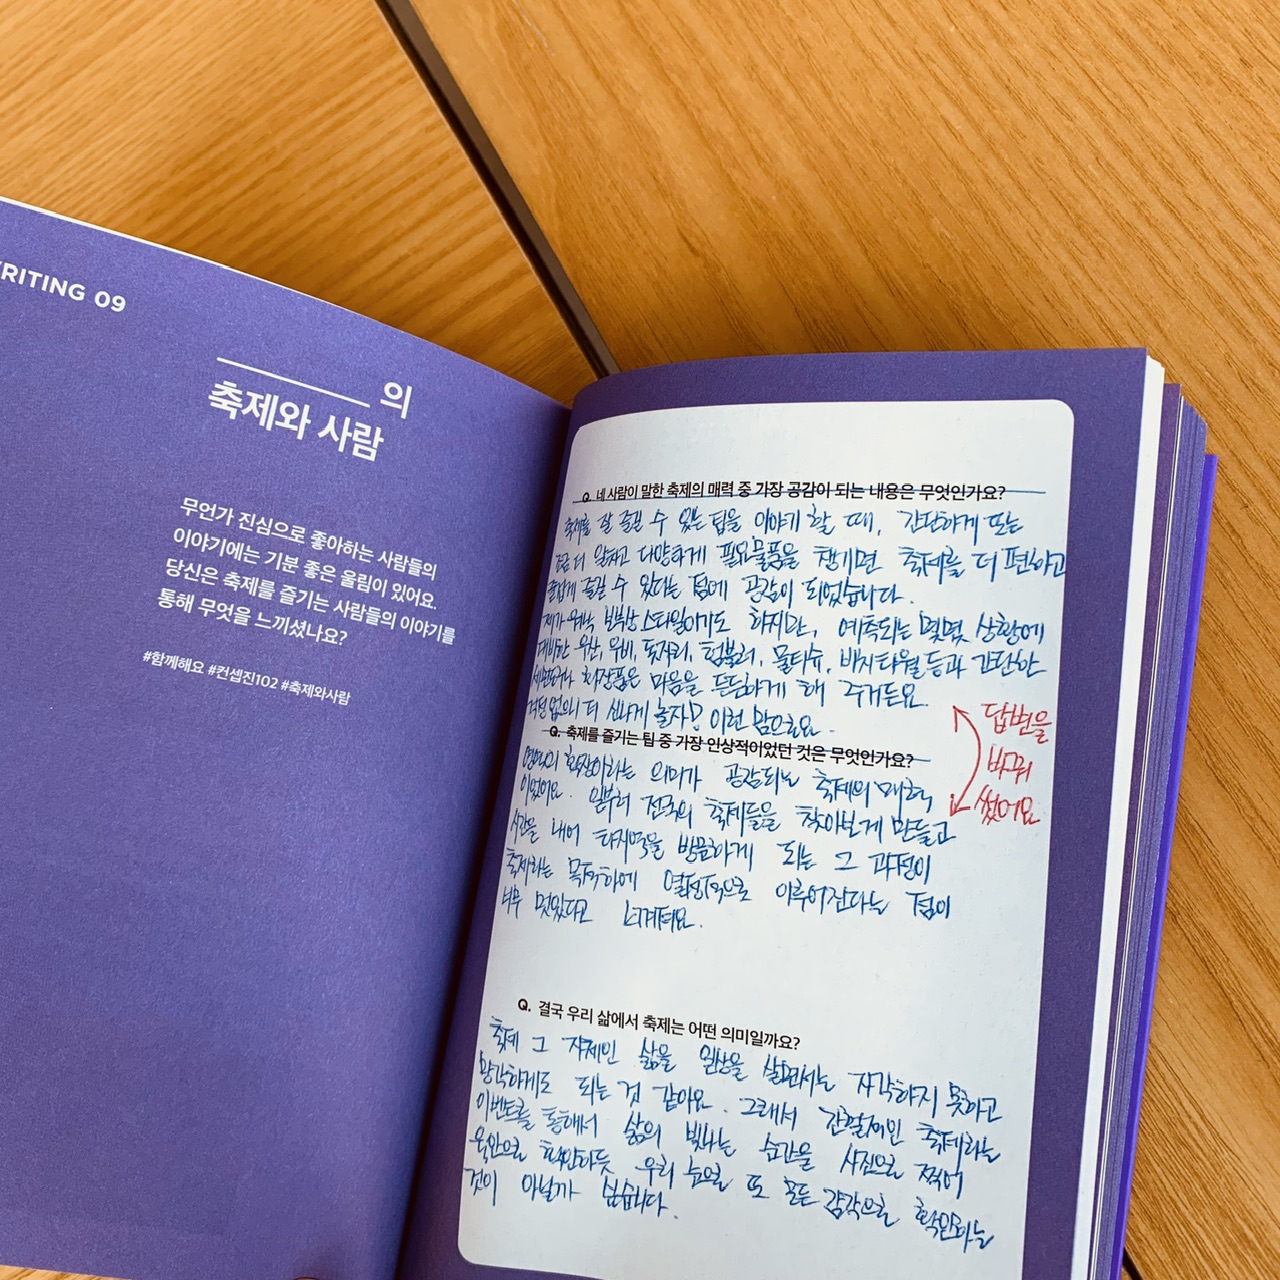 RITING 09
의
축제와 사람
무언가 진심으로 좋아하는 사람들의
이야기에는 기분 좋은 울림이 있어요.
당신은 축제를 즐기는 사람들의 이야기를
통해 무엇을 느끼셨나요?
#함께해요 #컨셉진102 #축제와사람
Q. 네 사람이 말한 축제의 매력 중 가장 공감이 되는 내용은 무엇인가요?
축제를 잘 즐길 수 있는 팁을 이야기 할 때, 간단하게 또는
조금 더 알차고 다양하게 필요물품을 챙기면 축제를 더 편하고
즐겁게 즐길 수 있다는 점에 공감이 되었습니다.
제가 워낙 보부상 스타일이기도 하지만, 예측되는 몇몇 상황에
대비한 우산, 우비, 돗자리, 텀블러, 물티슈, 비치타월 등과 간단한
화장품은 마음을 든든하게 해 주거든요.
걱정 없으니 더 신나게 놀자! 이런 맘으로요.
Q. 축제를 즐기는 팁 중 가장 인상적이었던 것은 무엇인가요?
영역의 확장이라는 의미가 공감되는 축제의 매력
이었어요. 일부러 전국의 축제들을 찾아보게 만들고
시간을 내어 타지역을 방문하게 되는 그 과정이
축제라는 목적하에 열정적으로 이루어진다는 점이
너무 멋있다고 느껴져요.
답변을
바꿔
썼어요
Q. 결국 우리 삶에서 축제는 어떤 의미일까요?
축제 그 자체인 삶을 일상을 살면서는 자각하지 못하고
망각하게도 되는 것 같아요. 그래서 간헐적인 축제라는
이벤트를 통해서 삶의 빛나는 순간을 사진으로 찍어
육안으로 확인하듯 우리 눈으로 또 모든 감각으로 확인하는
것이 아닐까 싶습니다.